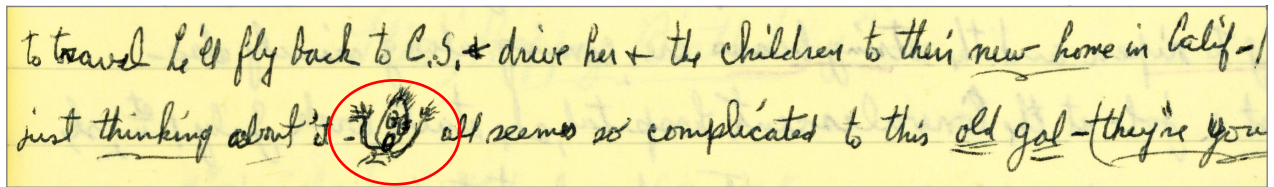 to travel he'll fly back to C.S. & drive her + the children to their new home in Calif-!
just thinking about it - all seems so complicated to this old gal - they're you